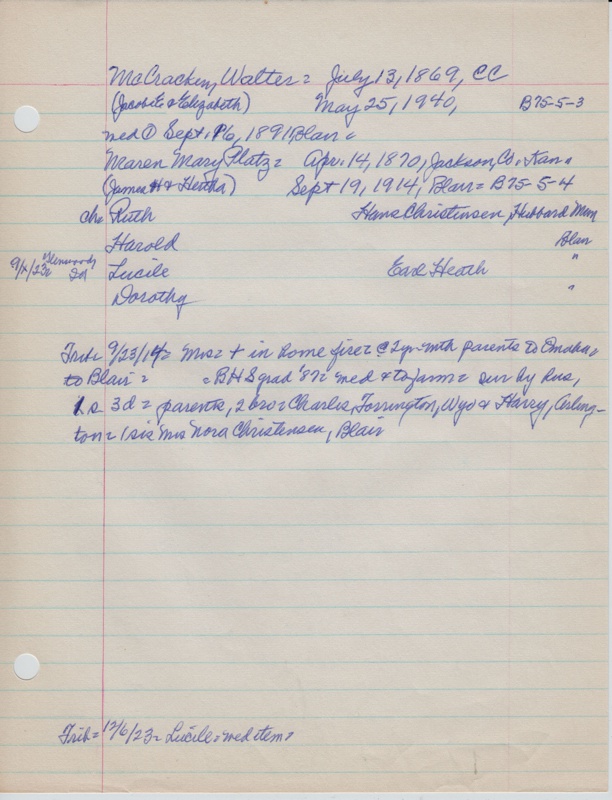 McCracken, Walter = July 13, 1869, CC
(Jacob E & Elizabeth) May 25, 1940, B75-5-3
wed ① Sept. 16, 1891, Blair =
Maren Mary Platz = Apr. 14, 1870, Jackson, Co. Kan =
(James H & Hertha) Sept 19, 1914, Blair = B75-5-4
ch = Ruth Hans Christensen, Hubbard
Harold Blair
9/4/23 = Glenwood, Lucile Earl Heath "
Dorothy "
Trib = 9/23/14 = Mrs = + in home fire = @ 2yr - with parents to Omaha =
to Blair = = BHS grad '87 = wed & to farm = sur by hus,
1 s 3d = parents, 2 bro = Charles, Torrington, Wyo & Harry, Arling-
ton = 1 sis Mrs Nora Christensen, Blair
Trib = 12/6/23 = Lucile = wed item =